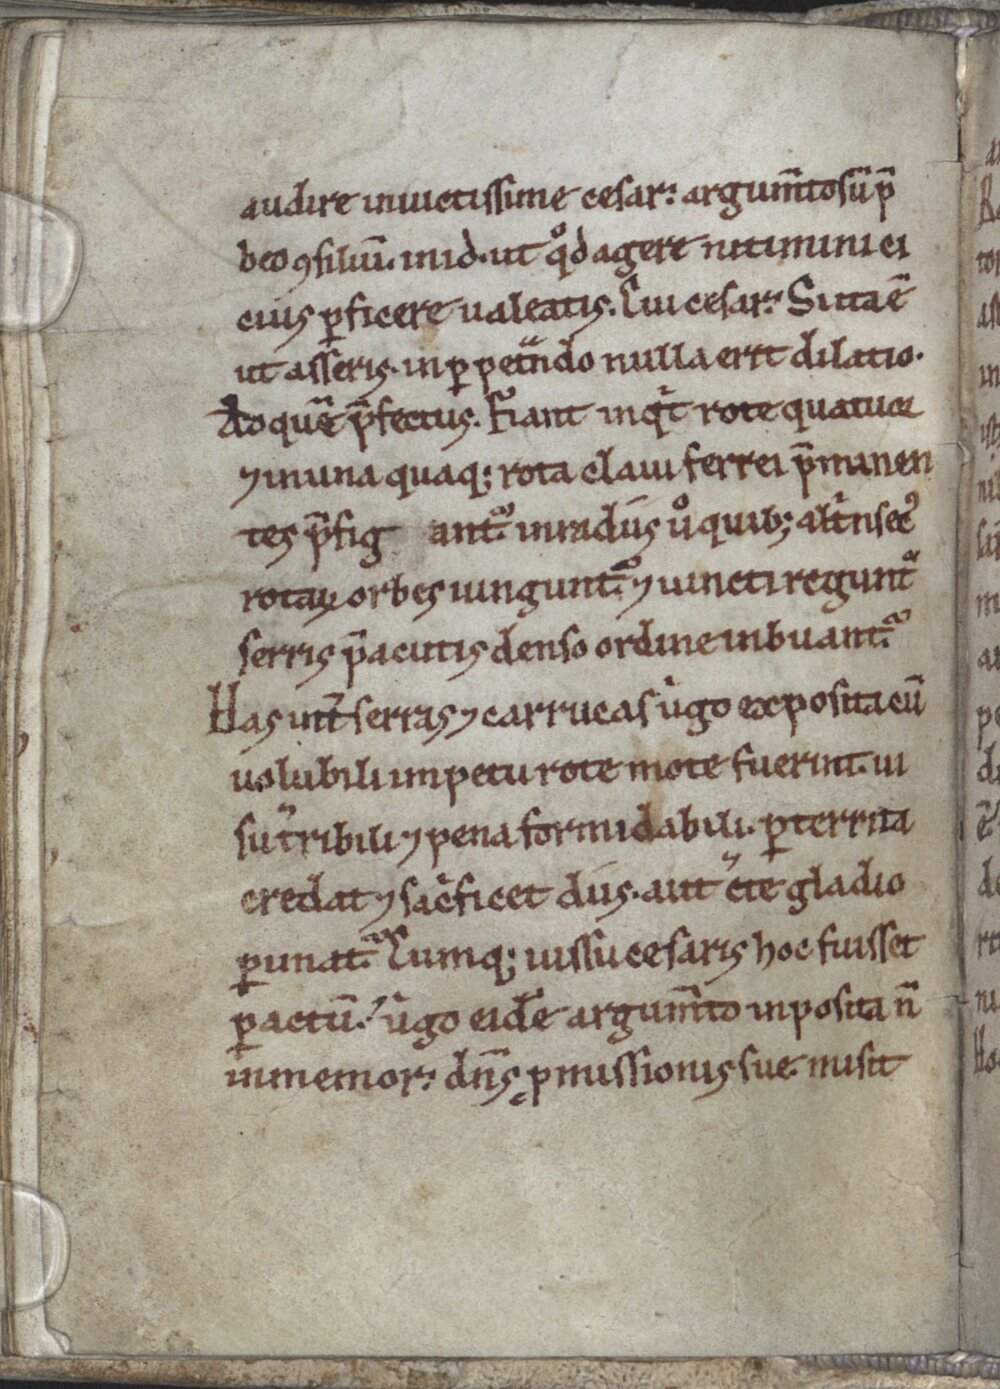 audire inuictissime cesar: argum̅tosu̅ p̅
beo ꝯsiliu̅. in id. ut qͦd agere nitimini ei
cius ꝑficere ualeatis. Cui cesar: Si ita e̅
ut asseris. in ꝑpet̅ndo nulla erit dilatio.
Ad que̅ p̅fectus. Fiant inqͥt rote quatuor
⁊ in una quaq; rota claui ferrei p̅minen
tes p̅fig antᷣ. in radiis uͦ quib; alt̅nsecꝰ
rotaꝝ orbes iunguntᷣ. ⁊ iuncti reguntᷣ
serris p̅acutis denso ordine inbuantᷣ.
Has int̅ serras ⁊ carrucas uͥgo exposita cu̅
uolubili impetu rote mote fuerint. ui
su t̅ribili ⁊ pena formidabili. ꝑterrita
credat ⁊ sacͥficet diis. aut c̅te gladio
ꝑimatᷣ. Cumq; iussu cesaris hoc fuisset
ꝑactu̅. uͥgo eide̅ argum̅to inposita n̅
inmemor: dn̅s ꝓmissionis sue. misit